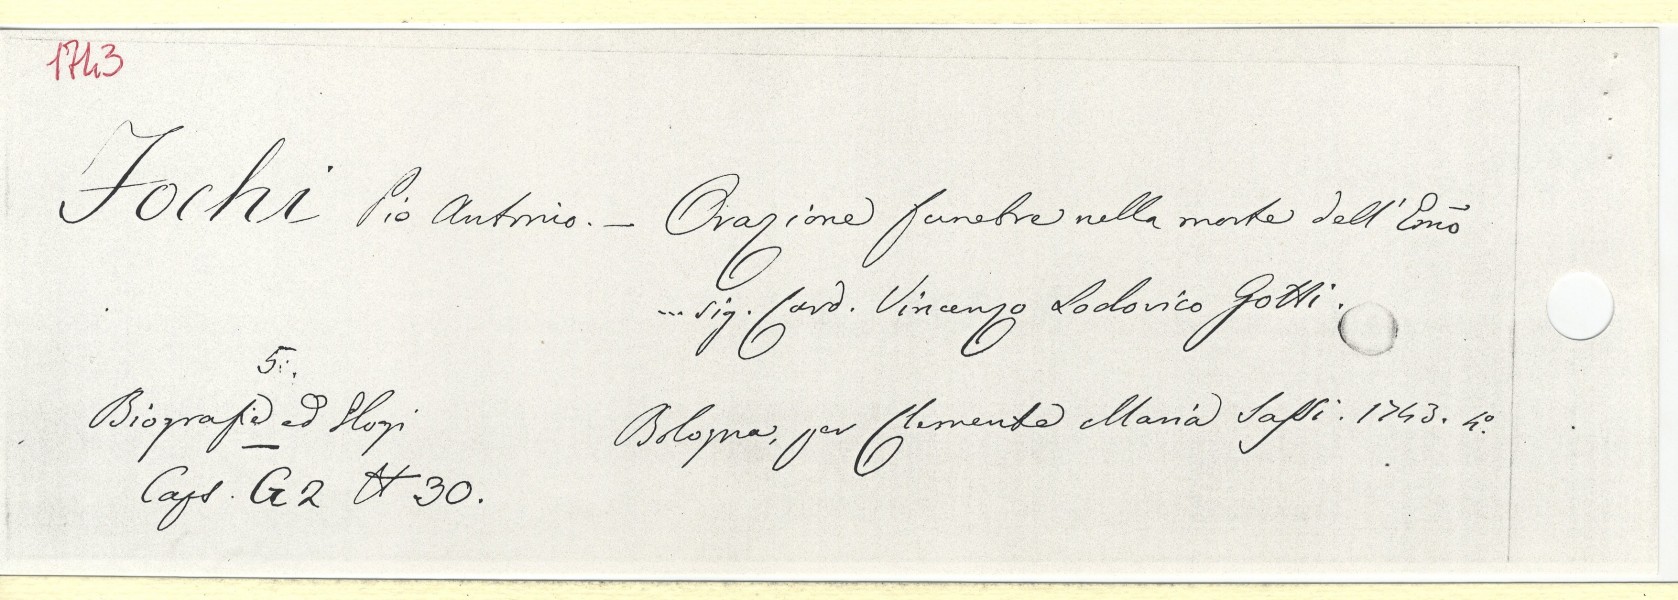 1743
Fochi Pio Antonio. — Orazione funebre nella morte dell' Emõ
... sig. Card. Vincenzo Lodovico Gotti.
5.
Biografie ed Elogi
Bologna, per Clemente Maria Sassi. 1743. 4º.
Caps. G2 N 30.